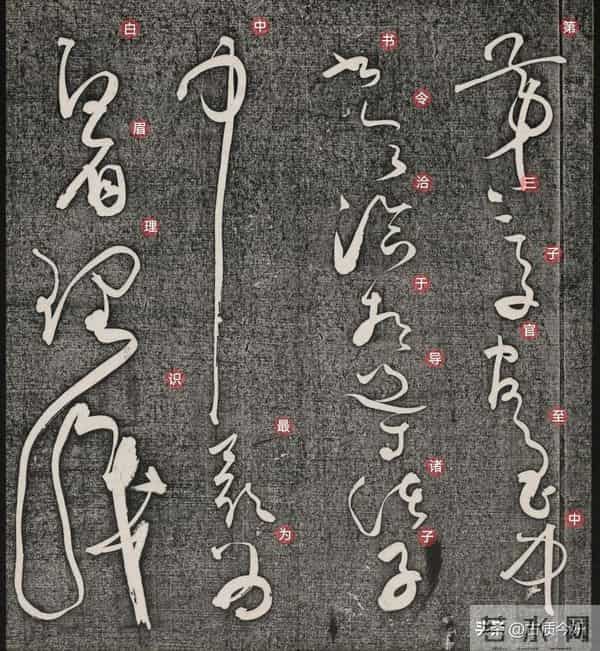 第三子官至中
书令洽于导诸子
中最为
白眉理识
头条 @古质今妍